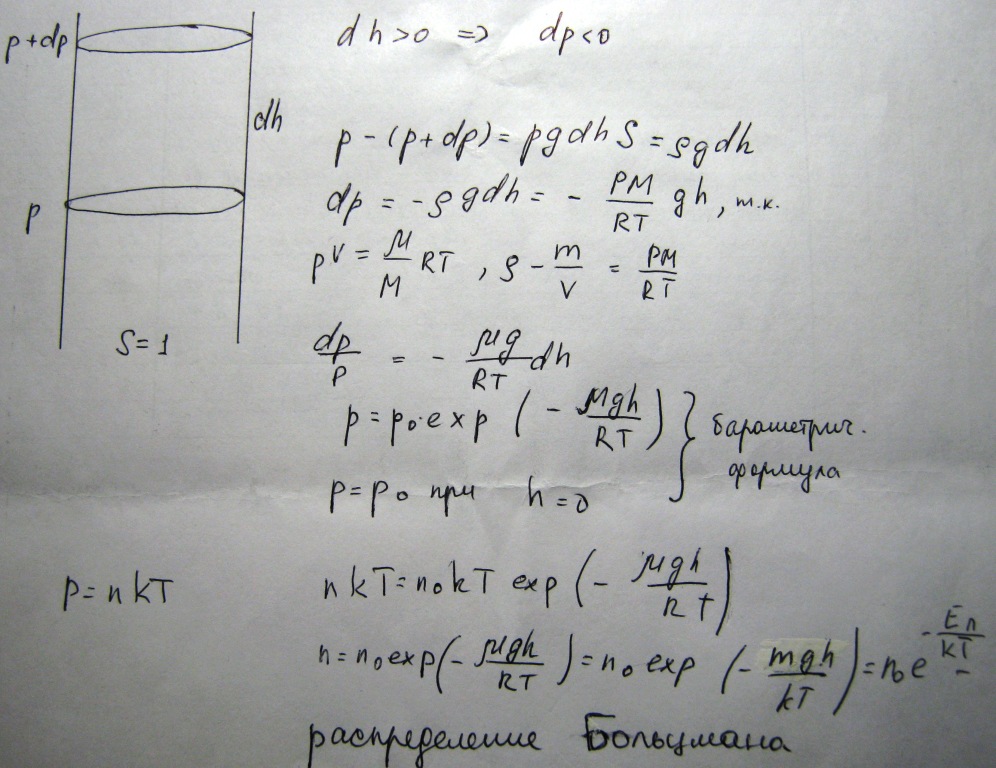 p+dp
dh>0 => dp<0
dh
p - (p+dp) = ρgdhS = ρgdh
p
dp = -ρgdh = - PM/RT gh, т.к.
pV = μ/M RT, ρ - m/V = PM/RT
S=1
dp/P = - μg/RT dh
p = p₀·exp (- μgh/RT) } барометрич. формула
p = p₀ при h=0
P = nkT
nkT = n₀kT exp (- μgh/RT)
n = n₀exp(- μgh/RT) = n₀ exp (- mgh/kT) = n₀e^(-Eп/kT)
распределение Больцмана